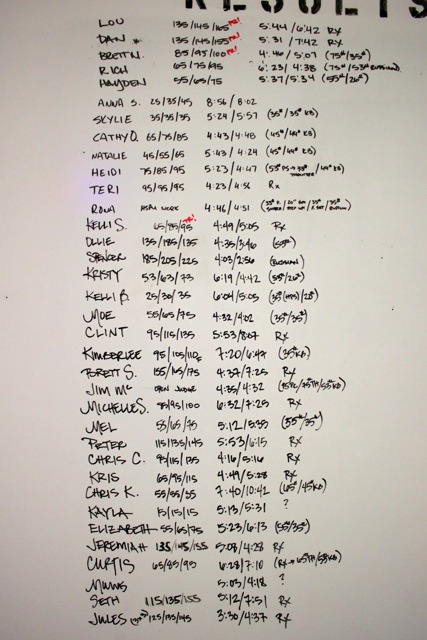 RESULTS
LOU 135/145/165 PR! 5:44/6:42 RX
DAN 135/145/155 PR! 5:31/7:42 RX
BRETT N. 85/95/100 PR! 4:46/5:07 (75#/35#)
RICH 65/75/95 6:23/4:38
HAYDEN 55/65/75 5:37/5:34 (55#/26#)
ANNA S. 25/35/45 8:56/8:02
SKYLIE 35/35/35 5:24/5:57 (35#/35# KB)
CATHY O. 65/75/85 4:43/4:48 (45#/44# KB)
NATALIE 45/55/65 5:43/4:24 (45#/44# KB)
HEIDI 75/85/95 5:23/4:47
TERI 95/95/95 4:23/4:56 Rx
RONA 4:46/4:51
KELLI S. 65/85/95 PR! 4:49/5:05 Rx
OLLIE 135/185/135 4:35/3:46
SPENCER 185/205/225 4:03/2:56 (RUSSIAN)
KRISTY 53/63/73 6:19/4:42 (55#/26#)
KELLI B. 25/30/35 6:04/5:05
MOE 55/65/75 4:32/4:02 (35#/35#)
CLINT 95/115/135 5:53/8:07 Rx
KIMBERLEE 95/105/110 7:20/6:47 (35# KB)
BRETT S. 155/165/175 4:37/7:25 Rx
JIM MC OPEN JUDGE 4:35/4:32
MICHELLE S. 85/95/100 6:32/7:25 Rx
MEL 55/65/75 5:12/5:35 (55#/35#)
PETER 115/135/145 5:53/6:15 Rx
CHRIS C. 95/115/135 4:16/5:16 Rx
KRIS 65/95/115 4:49/5:28 Rx
CHRIS K. 55/55/55 7:40/10:42 (65#/45# KB)
KAYLA 15/15/15 5:13/5:31 ?
ELIZABETH 55/65/75 5:23/6:13 (55#/35#)
JEREMIAH 135/145/155 5:08/4:28 Rx
CURTIS 65/85/95 6:28/7:10
MUMS 5:03/4:18 ?
SETH 115/135/155 5:12/7:51 Rx
JULES 125/135/145 3:30/4:37 Rx